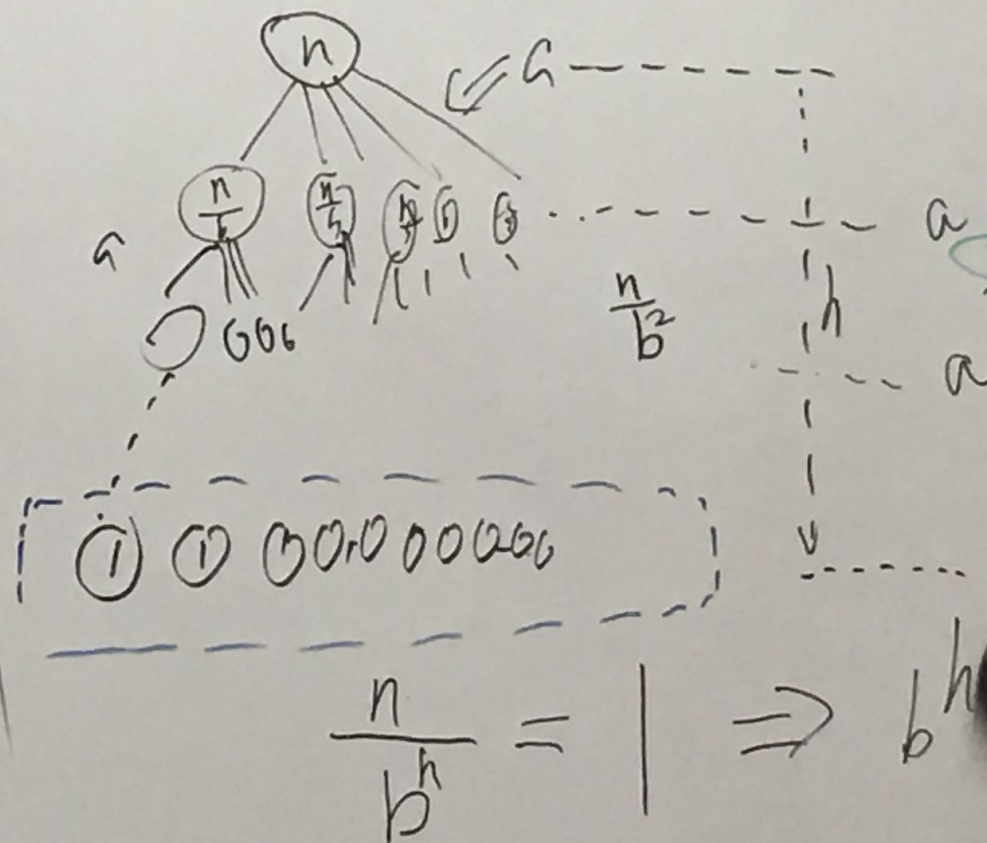 n
a
n/b n/b n/b
a
a
n/b²
h
a
1 1
n/b^h = 1 ⇒ b^h